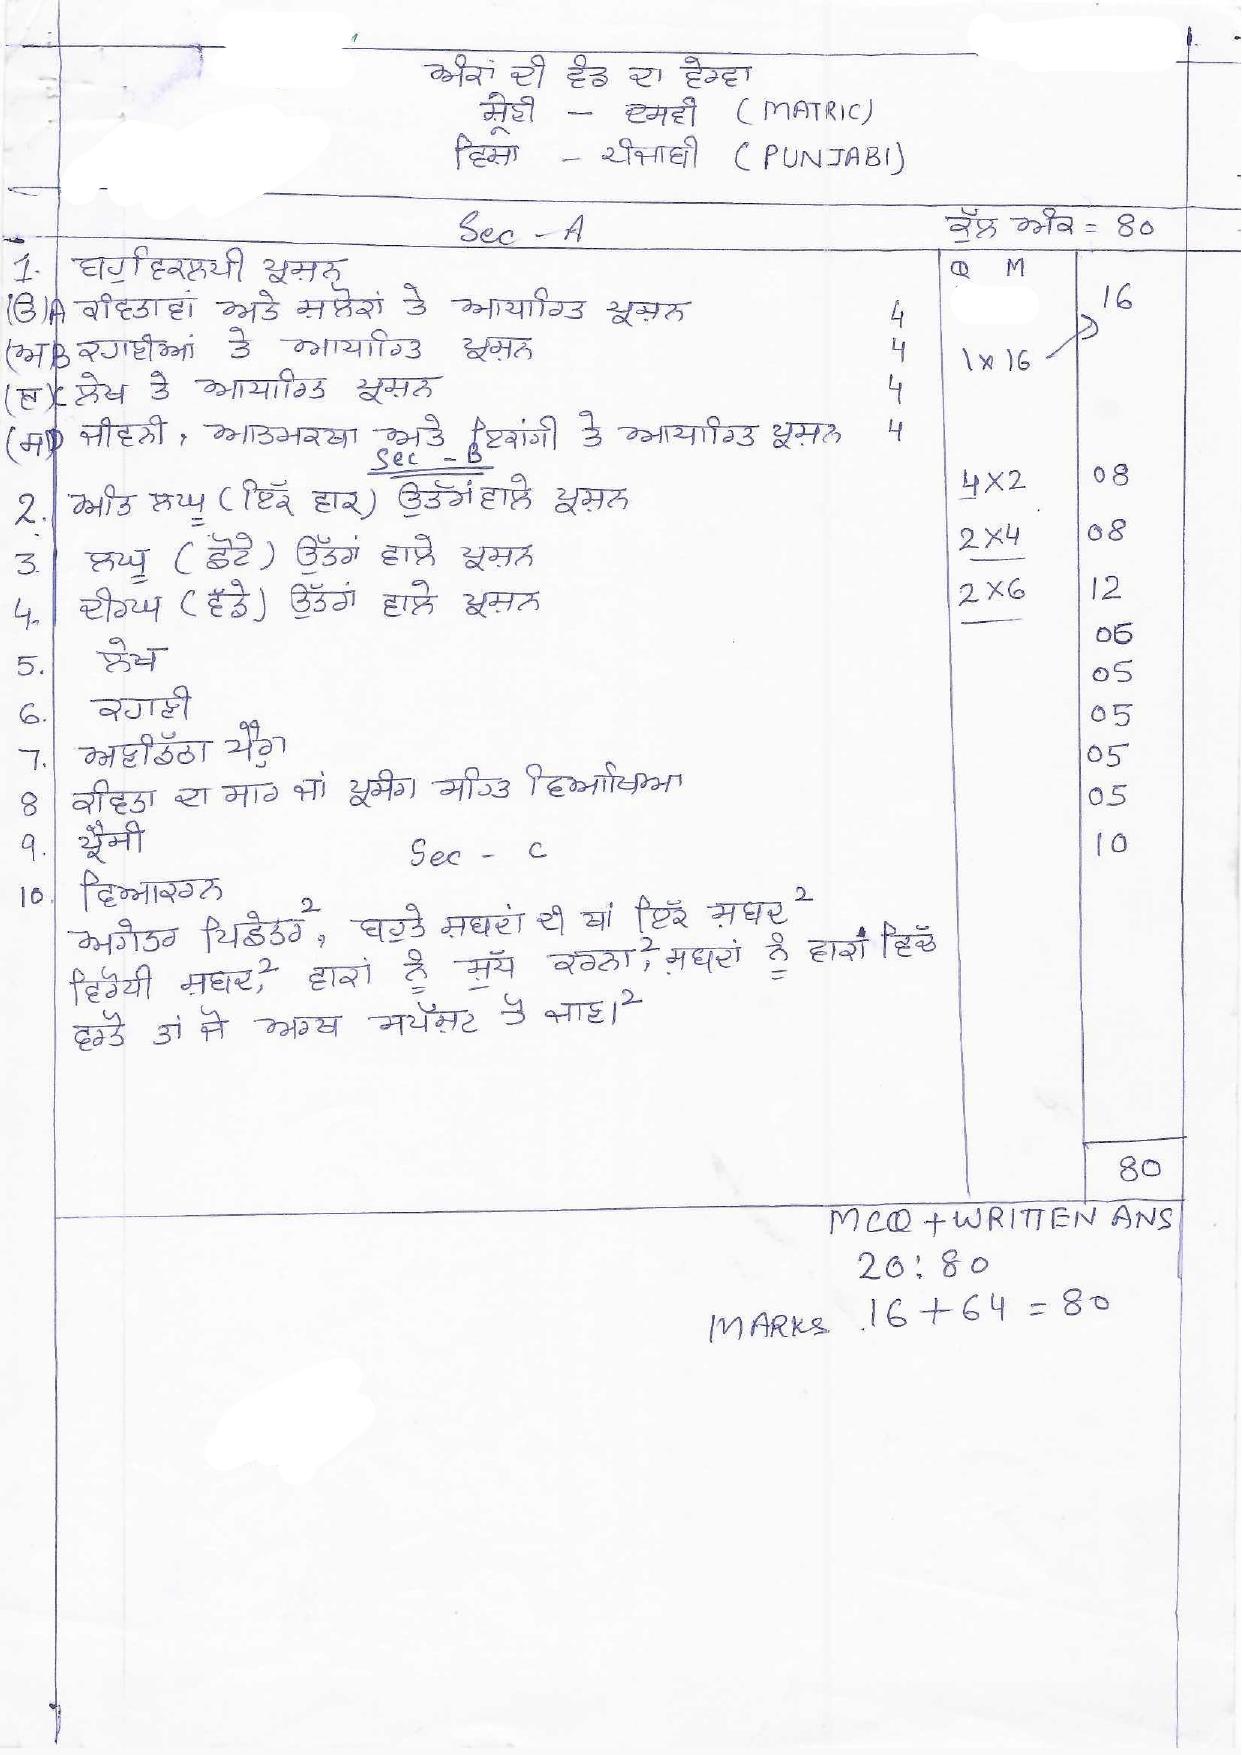 ਅੰਕਾਂ ਦੀ ਵੰਡ ਦਾ ਵੇਰਵਾ
ਸ਼੍ਰੇਣੀ – ਦਸਵੀਂ (MATRIC)
ਵਿਸ਼ਾ – ਪੰਜਾਬੀ (PUNJABI)
Sec - A ਕੁੱਲ ਅੰਕ = 80
1. ਬਹੁਵਿਕਲਪੀ ਪ੍ਰਸ਼ਨ Q M
(ੳ)A ਕਵਿਤਾਵਾਂ ਅਤੇ ਸ਼ਲੋਕਾਂ ਤੇ ਆਧਾਰਿਤ ਪ੍ਰਸ਼ਨ 4 16
(ਅ)B ਕਹਾਣੀਆਂ ਤੇ ਆਧਾਰਿਤ ਪ੍ਰਸ਼ਨ 4 1x16
(ੲ)C ਲੇਖ ਤੇ ਆਧਾਰਿਤ ਪ੍ਰਸ਼ਨ 4
(ਸ)D ਜੀਵਨੀ, ਆਤਮਕਥਾ ਅਤੇ ਇਕਾਂਗੀ ਤੇ ਆਧਾਰਿਤ ਪ੍ਰਸ਼ਨ 4
Sec - B
2. ਅਤਿ ਲਘੂ (ਇੱਕ ਵਾਕ) ਉਤੱਰਾਂ ਵਾਲੇ ਪ੍ਰਸ਼ਨ 4X2 08
3. ਲਘੂ (ਛੋਟੇ) ਉੱਤਰਾਂ ਵਾਲੇ ਪ੍ਰਸ਼ਨ 2X4 08
4. ਦੀਰਘ (ਵੱਡੇ) ਉੱਤਰਾਂ ਵਾਲੇ ਪ੍ਰਸ਼ਨ 2X6 12
5. ਲੇਖ 06
6. ਕਹਾਣੀ 05
7. ਅਣਡਿੱਠਾ ਪੈਰ੍ਹਾ 05
8 ਕਵਿਤਾ ਦਾ ਸਾਰ ਜਾਂ ਪ੍ਰਸੰਗ ਸਹਿਤ ਵਿਆਖਿਆ 05
9. ਪ੍ਰੈਸੀ 05
Sec - C
10. ਵਿਆਕਰਨ 10
ਅਗੇਤਰ ਪਿਛੇਤਰ², ਬਹੁਤੇ ਸ਼ਬਦਾਂ ਦੀ ਥਾਂ ਇੱਕ ਸ਼ਬਦ²
ਵਿਰੋਧੀ ਸ਼ਬਦ,² ਵਾਕਾਂ ਨੂੰ ਸ਼ੁੱਧ ਕਰਨਾ²,ਸ਼ਬਦਾਂ ਨੂੰ ਵਾਕਾਂ ਵਿਚੱ
ਵਰਤੋ ਤਾਂ ਜੋ ਅਰਥ ਸਪੱਸ਼ਟ ਹੋ ਜਾਣ।²
80
MCQ + WRITTEN ANS
20:80
MARKS 16 + 64 = 80